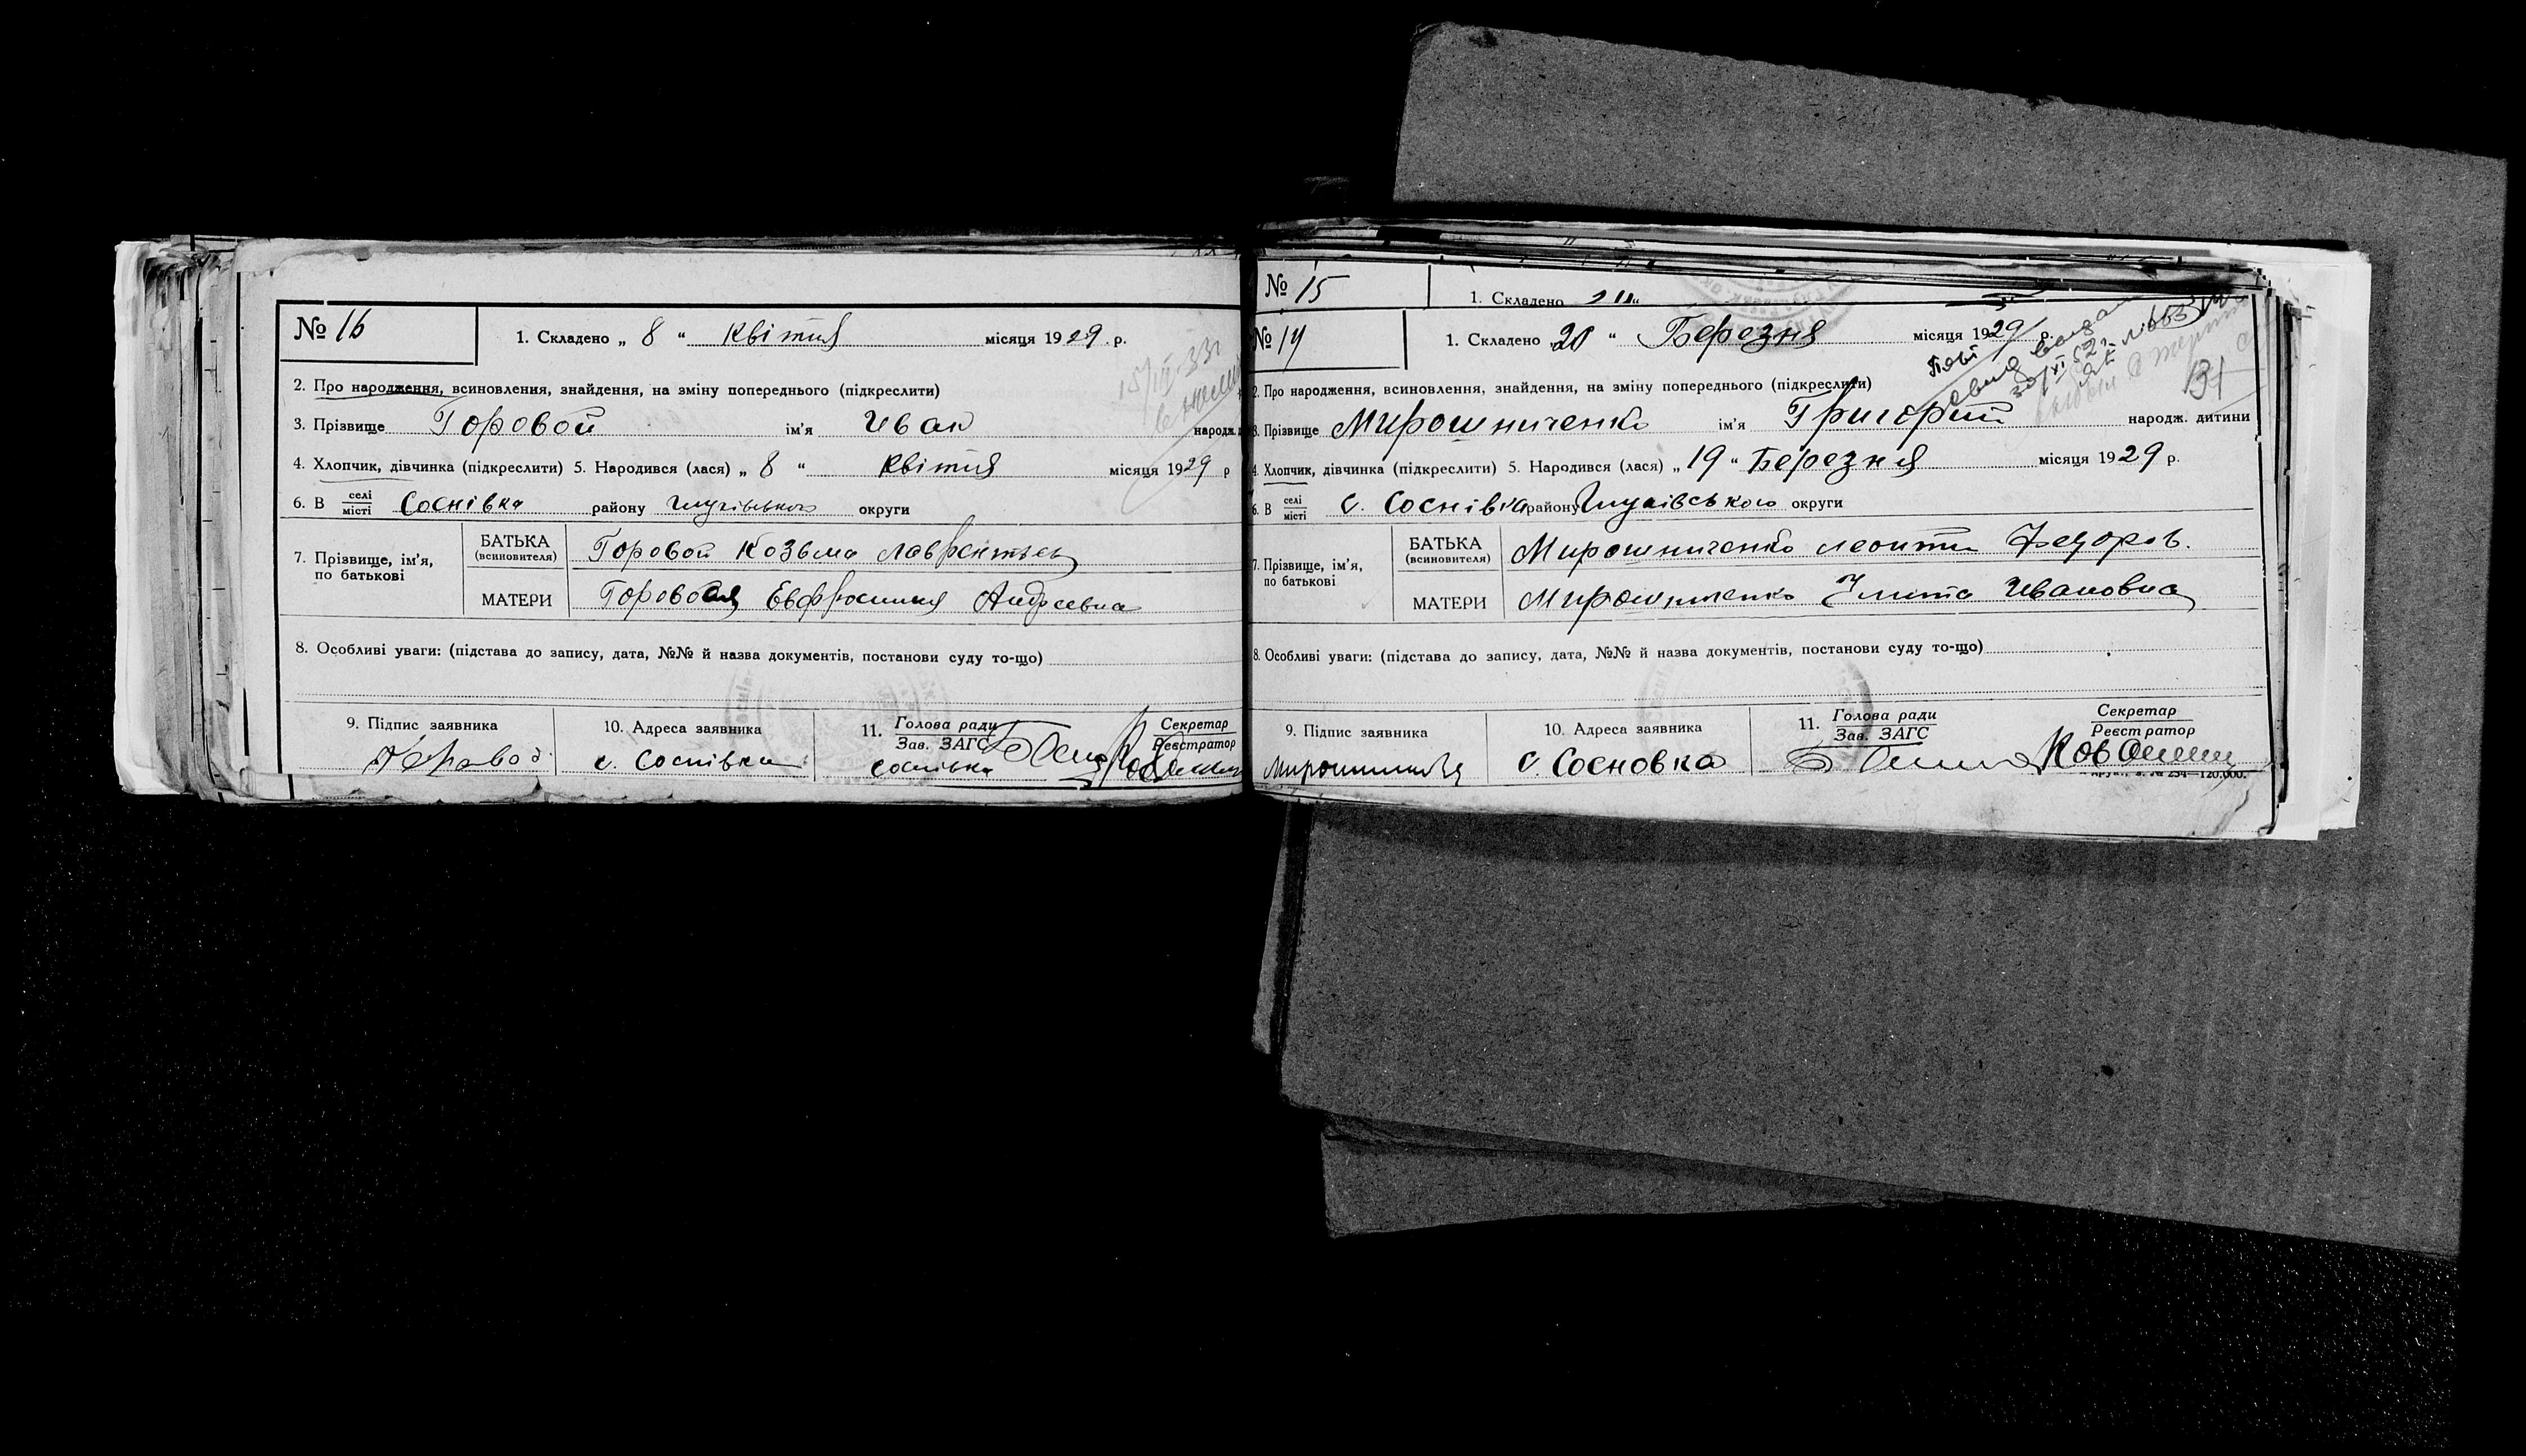 № 16
1. Складено „ 8 “ Квітня місяця 1929 р.
2. Про народження, всиновлення, знайдення, на зміну попереднього (підкреслити)
3. Прізвище Горовой ім'я Иван народж.
4. Хлопчик, дівчинка (підкреслити) 5. Народився (лася) „ 8 “ Квітня місяця 1929 р
6. В селі місті Соснівка району Глухівського округи
7. Прізвище, ім'я, по батькові
БАТЬКА (всиновителя) Горовой Козьма Лаврентьев
МАТЕРИ Горовоя Евфросиния Андреевна
8. Особливі уваги: (підстава до запису, дата, №№ й назва документів, постанови суду то-що)
9. Підпис заявника
10. Адреса заявника
с. Соснівка
11. Голова ради
Зав. ЗАГС
Соснівка
Секретар
Реєстратор
№ 15
1. Складено
№ 14
1. Складено 20 “ Березня місяця 1929 р.
2. Про народження, всиновлення, знайдення, на зміну попереднього (підкреслити)
3. Прізвище Мирошниченко ім'я Григорий народж. дитини
4. Хлопчик, дівчинка (підкреслити) 5. Народився (лася) „ 19 “ Березня місяця 1929 р.
6. В селі місті с. Соснівка району Глухівського округи
7. Прізвище, ім'я, по батькові
БАТЬКА (всиновителя) Мирошниченко Леонти Федоров.
МАТЕРИ Мирошниченко Улита Ивановна
8. Особливі уваги: (підстава до запису, дата, №№ й назва документів, постанови суду то-що)
9. Підпис заявника
10. Адреса заявника
с. Сосновка
11. Голова ради
Зав. ЗАГС
Секретар
Реєстратор